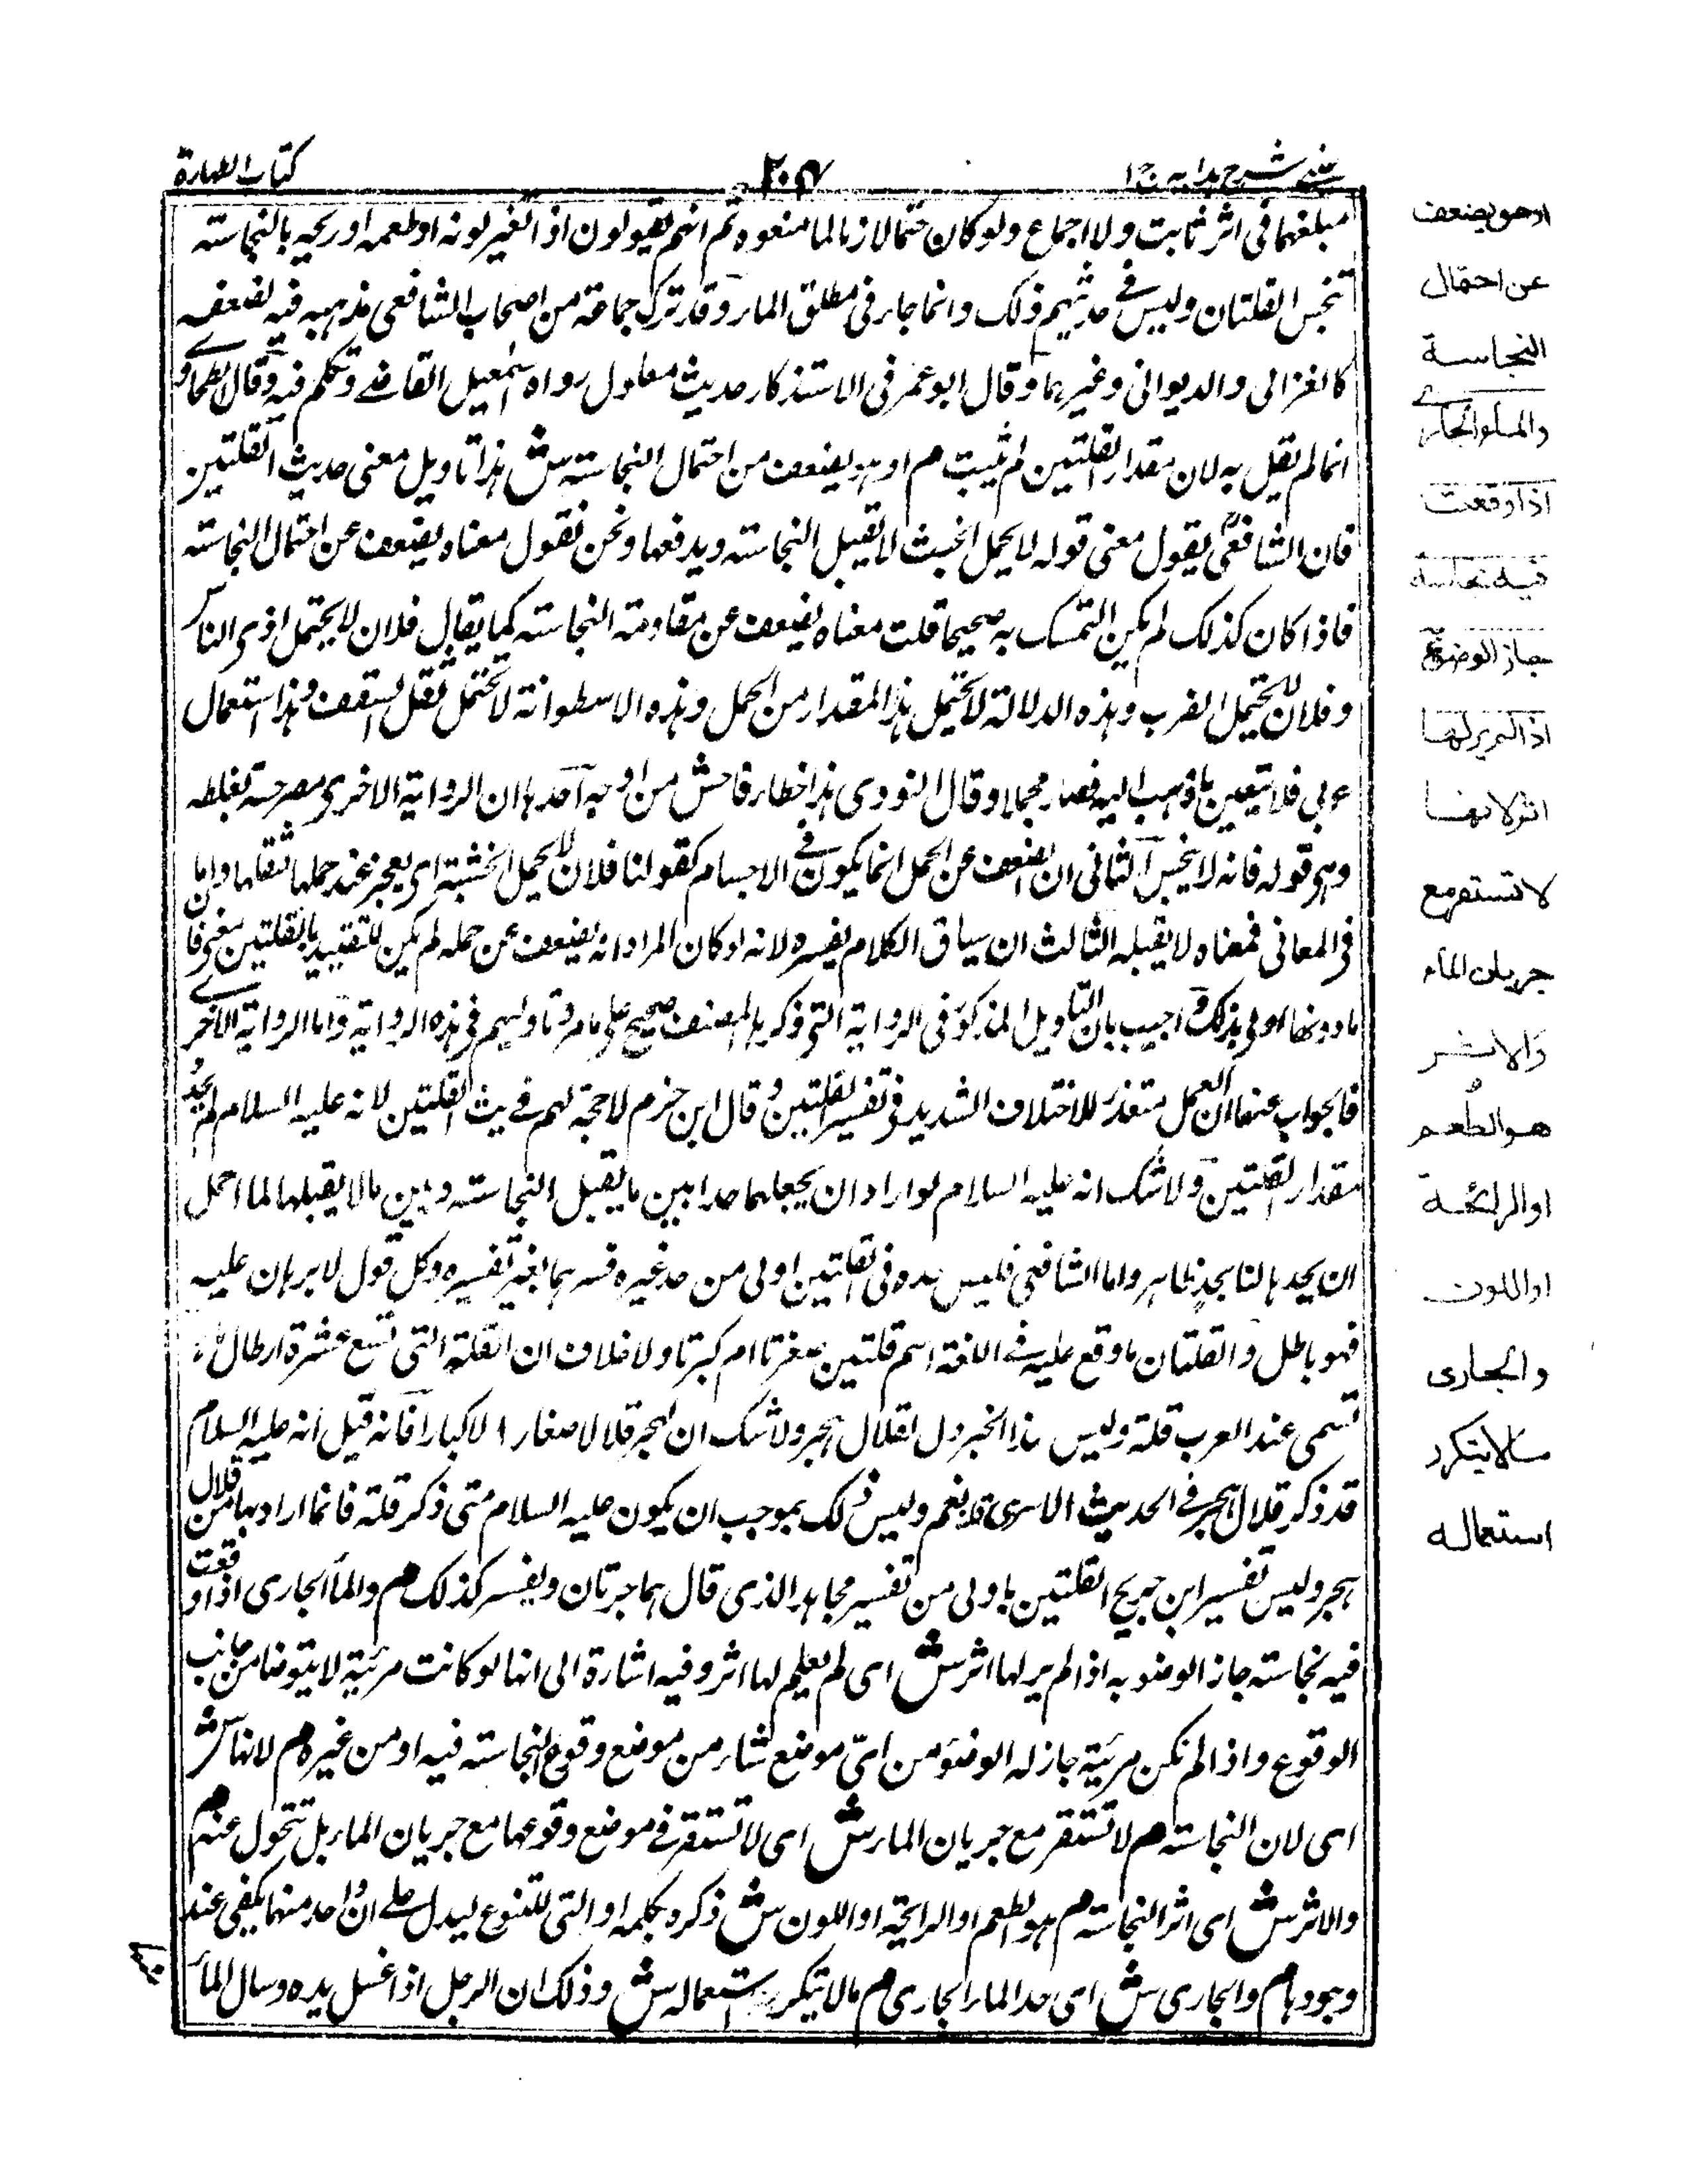 عینی شرح ہدایہ ج ۱
۲۰۴
کتاب الطہارة
مبلغهما فى اثر ثابت ولا اجماع ولو كان حتما لازما لما منعوه ثم انهم يقولون اذا تغير لونه او طعمه او ريحه بالنجاسته
تنجس القلتان وليس فى حديثهم ذلك وانما جاء فى مطلق الماء وقد ترك جماعة من اصحاب الشافعى مذهبه فيه لضعفه
كالغزالى والرويانى وغيرهما وقال ابو عمر فى الاستذكار حديث معلول رواه اسمعيل القاضى وتكلم فيه وقال الطحاوى
انما لم يقل به لان مقدار القلتين لم يثبت م او هو يضعف من احتمال النجاسته ش هذا تاويل معنى حديث القلتين
فان الشافعى يقول معنى قوله لا يحمل الخبث لا يقبل النجاسته ويدفعها ونحن نقول معناه يضعف عن احتمال النجاسته
فاذا كان كذلك لم يكن التمسك به صحيحا قلت معناه يضعف عن مقاومة النجاسته كما يقال فلان لا يحتمل اذى الناس
وفلان لا يحتمل الضرب وهذه الدلالة لا تحتمل هذا المقدار من الحمل وهذه الاسطوانة لا تحتمل ثقل السقف وهذا استعمال
عربى فلا يتعين ما ذهب اليه فصار مجملا وقال النووى هذا خطاء فاحش من اوجه احدها ان الرواية الاخرى مصرحة بغلطه
وهى قوله فانه لا ينجس الثانى ان الضعف عن الحمل انما يكون فى الاجسام كقولنا فلان لا يحمل الخشبة اى يعجز عند حملها لثقلها واما
فى المعانى فمعناه لا يقبله الثالث ان سياق الكلام يفسره لانه لو كان المراد انه يضعف عن حمله لم يكن للتقييد بالقلتين معنى فان
ما دونها اولى بذلك واجيب بان التاويل المذكور فى الرواية التى ذكرها المصنف صحيح على ما مر وتاويلهم فى هذه الرواية واما الرواية الاخرى
فالجواب عنها ان العمل متعذر للاختلاف الشديد فى تفسير القلتين وقال ابن حزم لا حجة لهم فى حديث القلتين لانه عليه السلام لم يحد
مقدار القلتين ولا شك انه عليه السلام لو اراد ان يجعلهما حدا بين ما يقبل النجاسته وبين ما لا يقبلها لما اهمل
ان يحدها لنا بحد ظاهر واما الشافعى فليس حده فى القلتين اولى من حد غيره فسرهما بغير تفسيره وكل قول لا برهان عليه
فهو باطل والقلتان ما وقع عليه فى اللغة اسم قلتين صغرتا ام كبرتا ولا خلاف ان القلة التى تسع عشرة ارطال ماء
تسمى عند العرب قلة وليس هذا الخبر دل لقلال هجر ولا شك ان لهجر قلالا صغارا لا كبارا فانه قيل انه عليه السلام
قد ذكر قلال هجر فى الحديث الاسرى قلنا نعم وليس ذلك بموجب ان يكون عليه السلام متى ذكر قلة فانما اراد بها من قلال
هجر وليس تفسير ابن جريح القلتين باولى من تفسير مجاهد الذى قال هما جرتان ويفسر كذلك م والماء الجارى اذا وقعت
فيه نجاسته جاز الوضوء به اذا لم ير لها اثر ش اى لم يعلم لها اثر وفيه اشارة الى انها لو كانت مرئية لا يتوضا من جانب
الوقوع واذا لم تكن مرئية جاز له الوضوء من اىّ موضع شاء من موضع وقوع النجاسته فيه او من غيره م لانها ش
اى لان النجاسته م لا تستقر مع جريان الماء ش اى لا تستقر فى موضع وقوعها مع جريان الماء بل تتحول عنه م
والاثر ش اى اثر النجاسته م هو الطعم او الرايحة او اللون ش ذكره بكلمة او التى للتنوع ليدل على ان واحد منهما يكفى عند
وجودها م والجارى ش اى حد الماء الجارى م مالا يتكرر استعماله ش وذلك ان الرجل اذا غسل يده وسال الماء
اوهو يضعف
عن احتمال
النجاسة
والماء الجارى
اذا وقعت
فيه نجاسة
جاز الوضوء
اذا لم ير لها
اثر لانها
لا تستقر مع
جريان الماء
والاثر
هو الطعم
او الرائحة
او اللون
والجارى
مالا يتكرر
استعماله